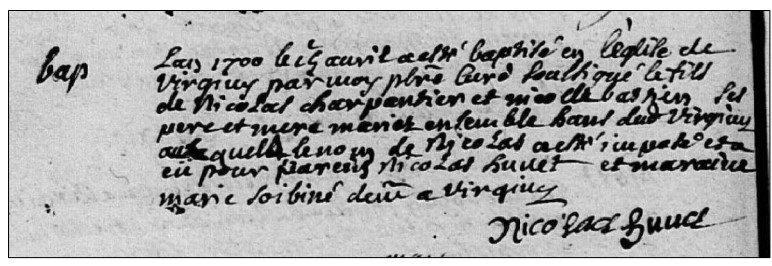 bap
Lan 1700 le avril a esté baptisé en l'eglise de
Virginy par moy pbre curé soubsigné le fils
de Nicolas charpantier et nicole bastien ses
pere et mere mariet ensemble hans dud Virginy
auquel le nom de Nicolas a esté imposé et a
eu pour parein Nicolas huvet et maraine
marie demt a Virginy
Nicolas huvet